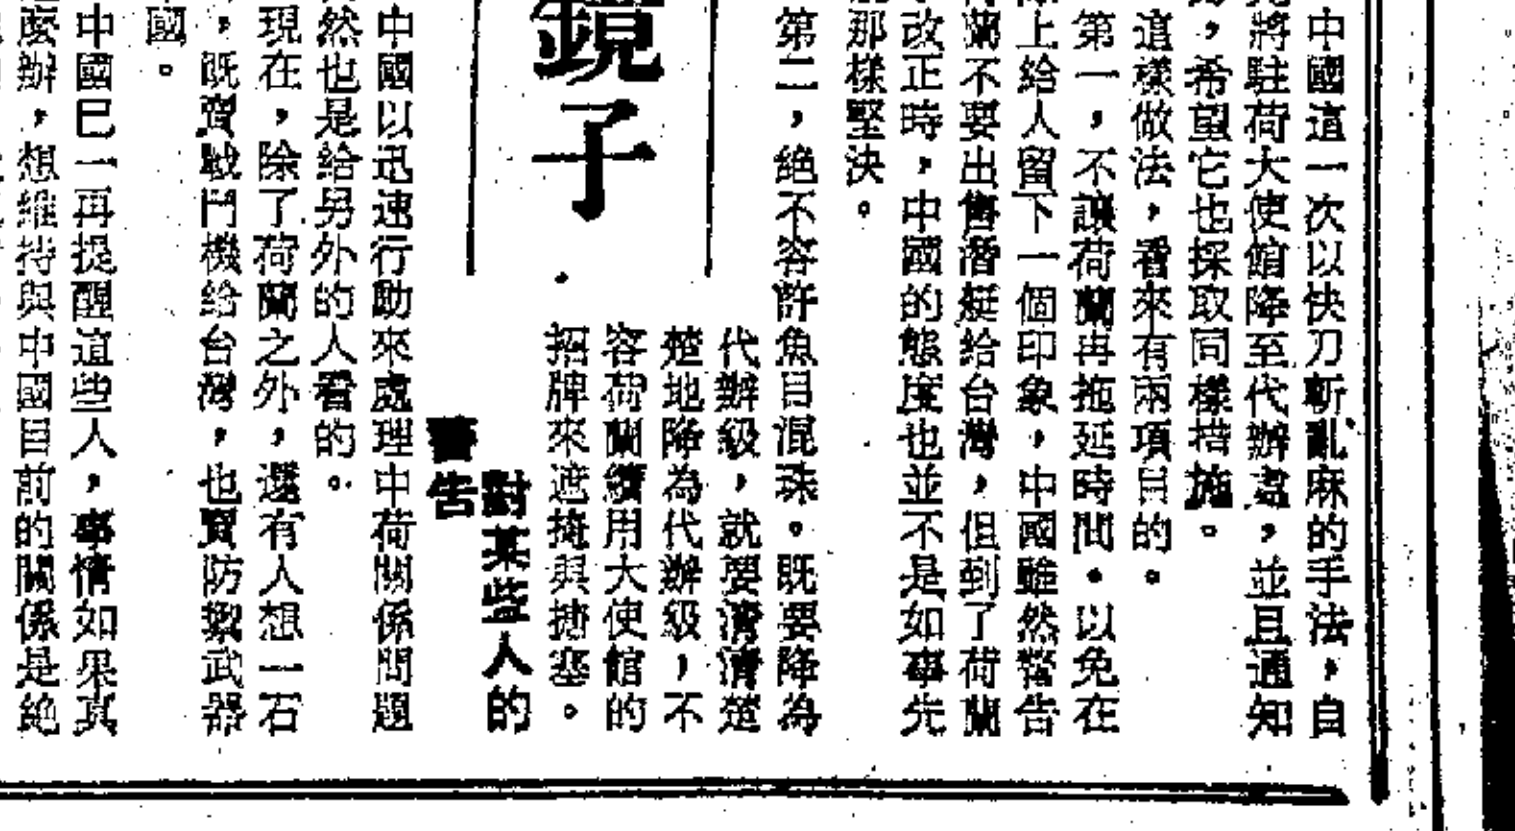 中國這一次以快刀斬亂麻的手法，自
將駐荷大使館降至代辦處，並且通知
，希望它也採取同樣措施。
這樣做法，看來有兩項目的。
第一，不讓荷蘭再拖延時間。以免在
上給人留下一個印象，中國雖然警告
蘭不要出售潛艇給台灣，但到了荷蘭
改正時，中國的態度也並不是如事先
那樣堅決。
第二，絕不容許魚目混珠。既要降為
代辦級，就要清清楚
楚地降為代辦級，不
容荷蘭續用大使館的
招牌來遮掩與搪塞。
鏡子
對某些人的
警告
中國以迅速行動來處理中荷關係問題
然也是給另外的人看的。
現在，除了荷蘭之外，還有人想一石
，既賣戰鬥機給台灣，也賣防禦武器
國。
中國已一再提醒這些人，事情如果真
麼辦，想維持與中國目前的關係是絕